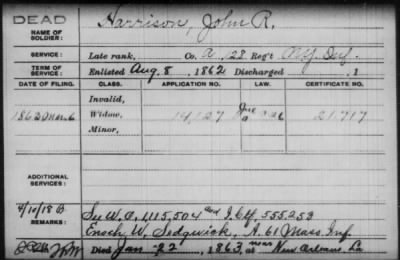 DEAD
NAME OF SOLDIER:
Harrison, John R.
SERVICE:
Late rank, Co. A, 128 Reg't N.Y. Inf.
TERM OF SERVICE:
Enlisted Aug. 8, 1862 Discharged , 1
DATE OF FILING. CLASS. APPLICATION NO. LAW. CERTIFICATE NO.
Invalid,
1863 Mar. 6 Widow, 14,127 21.717
Minor,
ADDITIONAL SERVICES:
4/10/18 B
REMARKS:
See W.O. 1,115,504 and I. Ctf. 555,253
Enoch W. Sedgwick, A. 61 Mass Inf
Died Jan 22, 1863, at near New Orleans, La